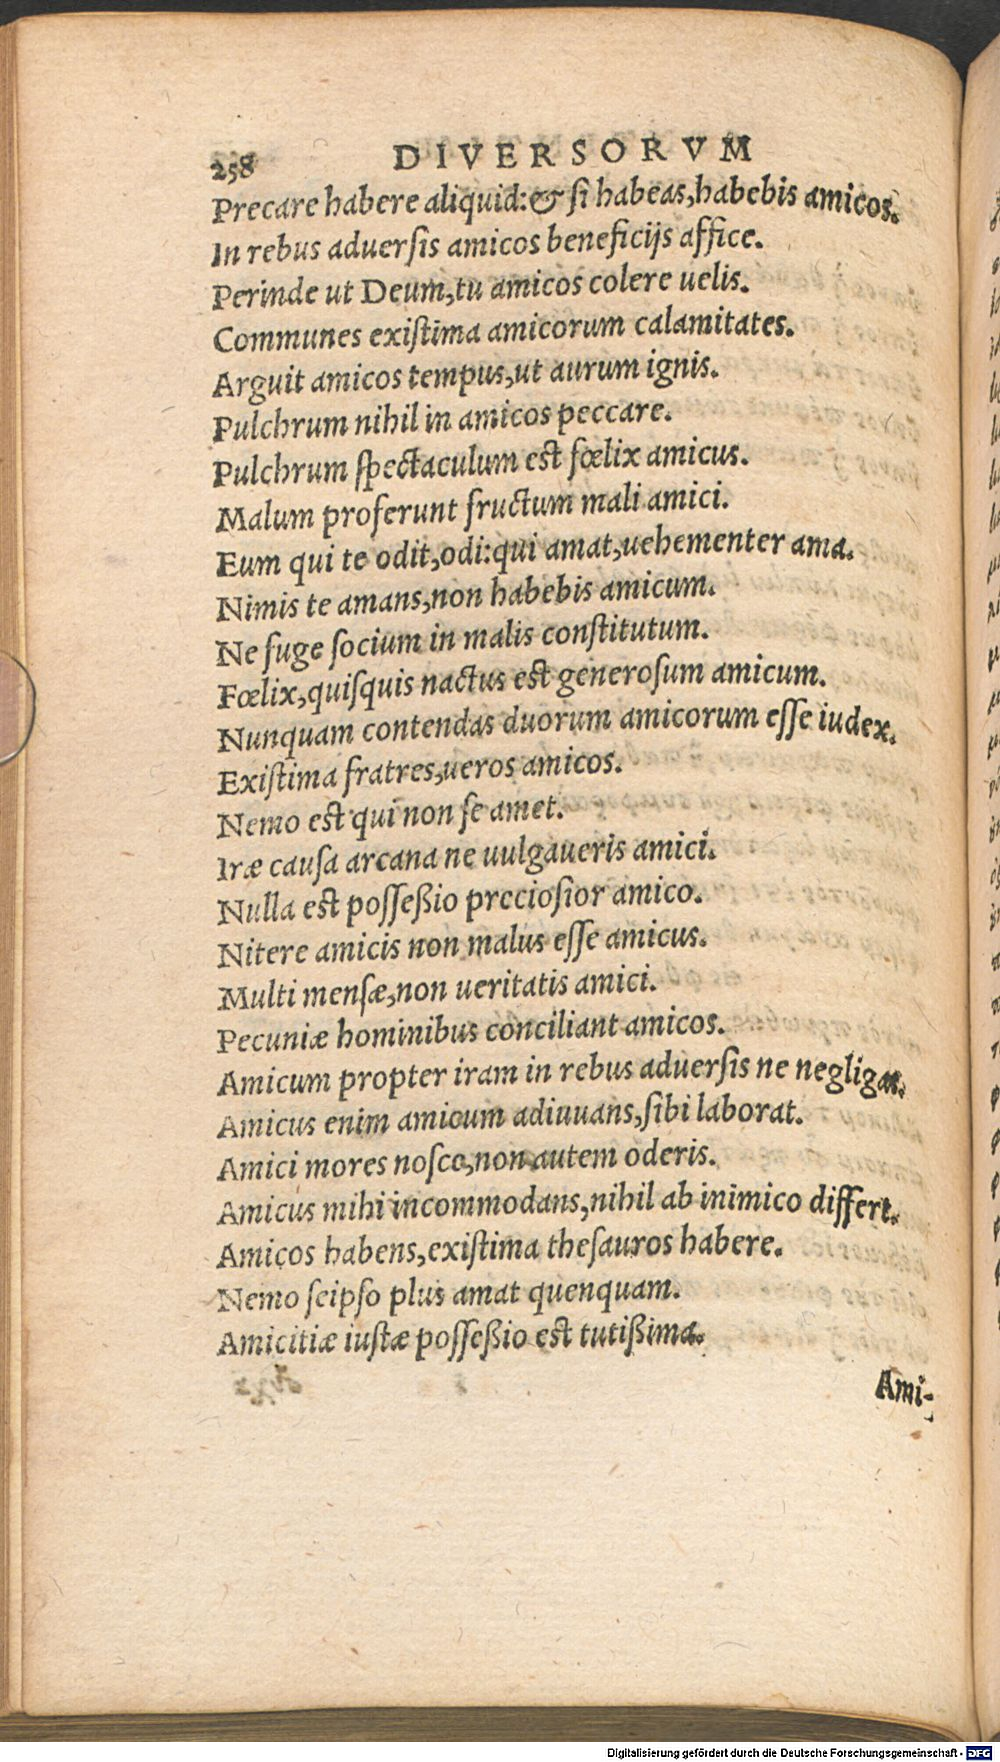 258 DIVERSORVM
Precare habere aliquid:& ſi habeas,habebis amicos.
In rebus aduerſis amicos beneficijs affice.
Perinde ut Deum,tu amicos colere uelis.
Communes exiſtima amicorum calamitates.
Arguit amicos tempus,ut aurum ignis.
Pulchrum nihil in amicos peccare.
Pulchrum ſpectaculum eſt fœlix amicus.
Malum proferunt fructum mali amici.
Eum qui te odit,odi:qui amat,uehementer ama.
Nimis te amans,non habebis amicum.
Ne fuge ſocium in malis conſtitutum.
Fœlix,quiſquis nactus eſt generoſum amicum.
Nunquam contendas duorum amicorum eſſe iudex.
Exiſtima fratres,ueros amicos.
Nemo eſt qui non ſe amet.
Iræ cauſa arcana ne uulgaueris amici.
Nulla eſt poſſeßio precioſior amico.
Nitere amicis non malus eſſe amicus.
Multi menſæ,non ueritatis amici.
Pecuniæ hominibus conciliant amicos.
Amicum propter iram in rebus aduerſis ne negligas.
Amicus enim amicum adiuuans,ſibi laborat.
Amici mores noſce,non autem oderis.
Amicus mihi incommodans,nihil ab inimico differt.
Amicos habens,exiſtima theſauros habere.
Nemo ſeipſo plus amat quenquam.
Amicitiæ iuſtæ poſſeßio eſt tutißima.
Ami-
Digitalisierung gefördert durch die Deutsche Forschungsgemeinschaft - DFG